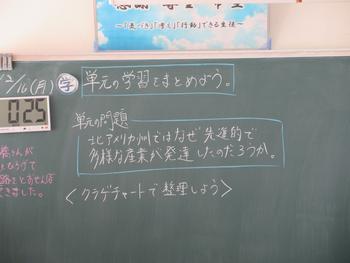 ～「気づき」「考え」「行動」できる生徒～
12/16(月)
学
単元の学習をまとめよう。
025
単元の問題
北アメリカ州ではなぜ先進的で
多様な産業が発達したのだろうか。
<クラゲチャートで整理しよう>
さんが
ひろげて
きました。